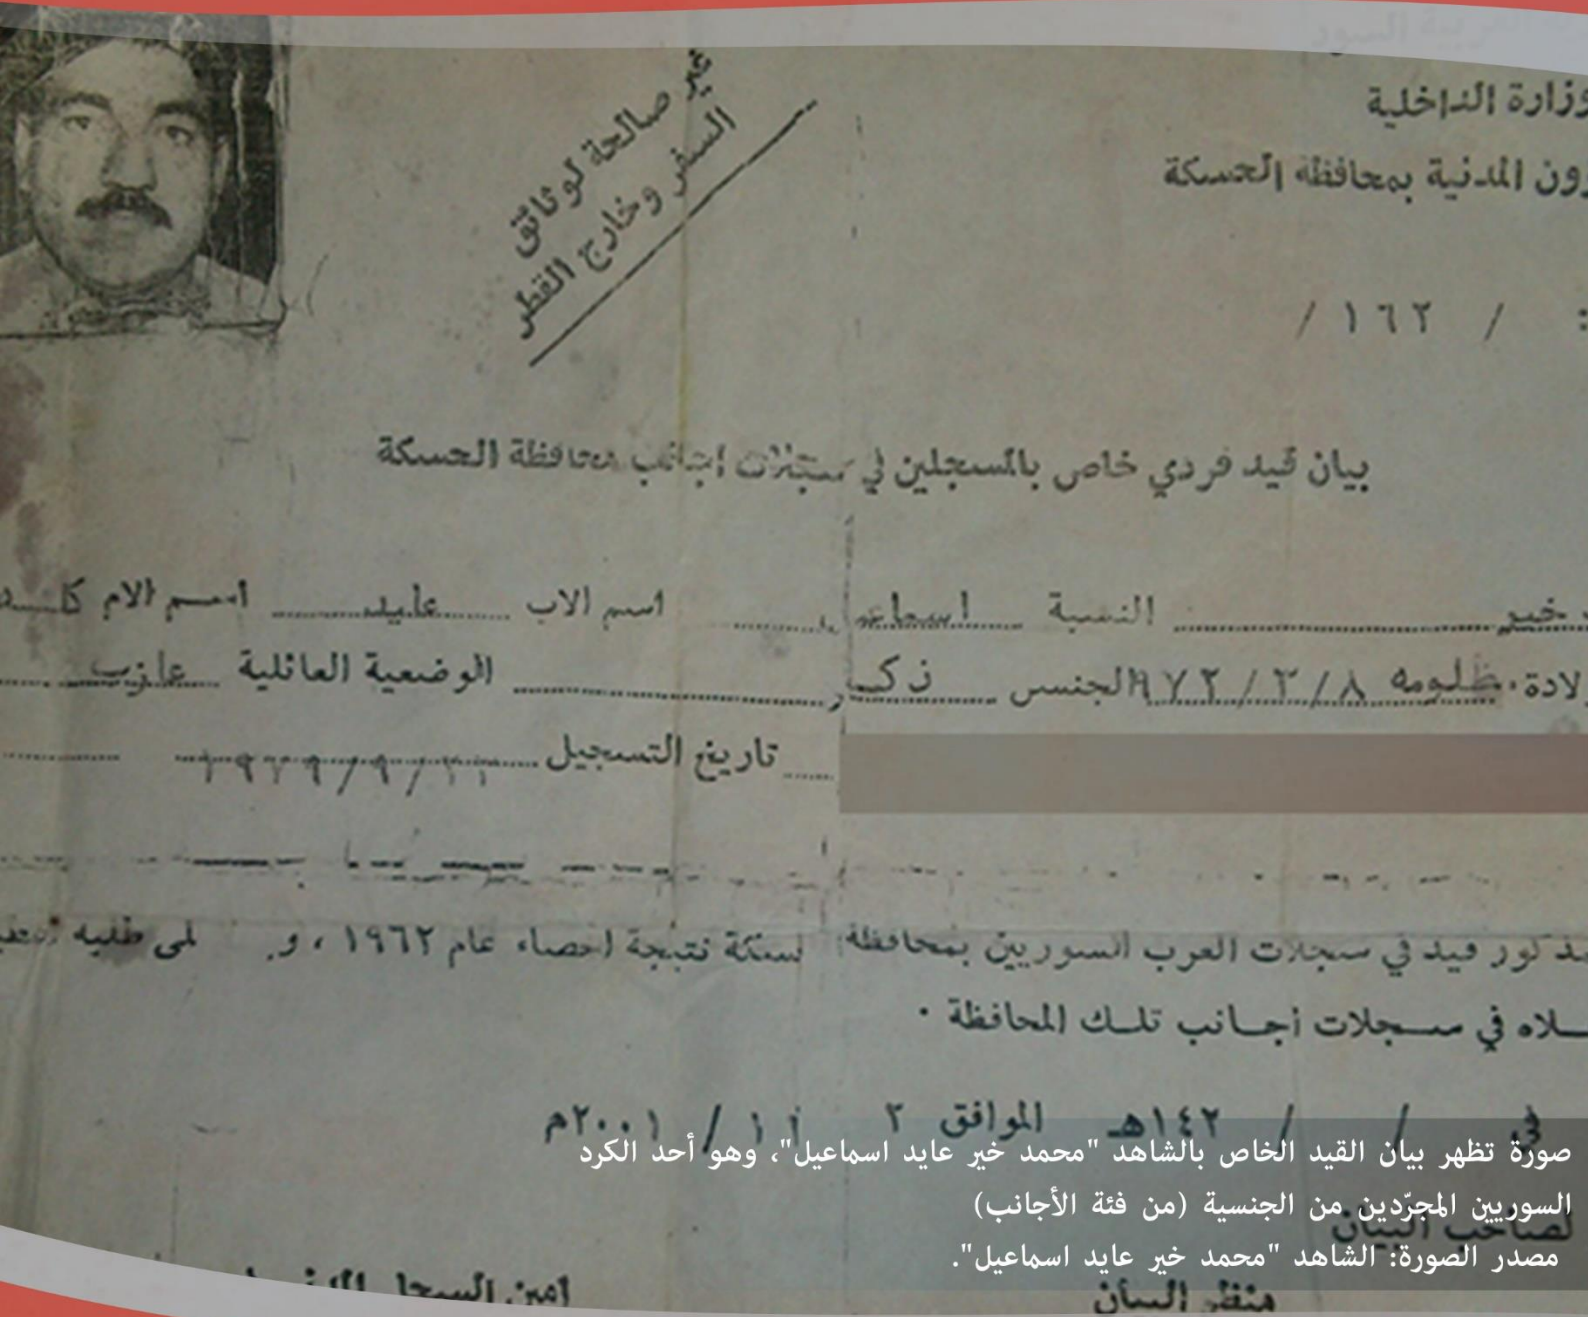 وزارة الداخلية
ون المدنية بمحافظة الحسكة
/ ١٦٢ /
غير صالحة لوثائق
السفر وخارج القطر
بيان قيد فردي خاص بالمسجلين في سجلات اجانب محافظة الحسكة
خير النسبة اسماعيل اسم الاب عايد اسم الام
ظلومه ٨/٣/٩٧٢ الجنس ذكر الوضعية العائلية عازب
تاريخ التسجيل
قيد في سجلات العرب السوريين بمحافظة نتيجة احصاء عام ١٩٦٢ ، و طلبه
في سجلات أجانب تلك المحافظة .
في / / ١٤٢هـ الموافق ٢ / ١١ / ٢٠٠١م
لصاحب البيان
منظم البيان أمين السجل
صورة تظهر بيان القيد الخاص بالشاهد "محمد خير عايد اسماعيل"، وهو أحد الكرد
السوريين المجرّدين من الجنسية (من فئة الأجانب)
مصدر الصورة: الشاهد "محمد خير عايد اسماعيل".